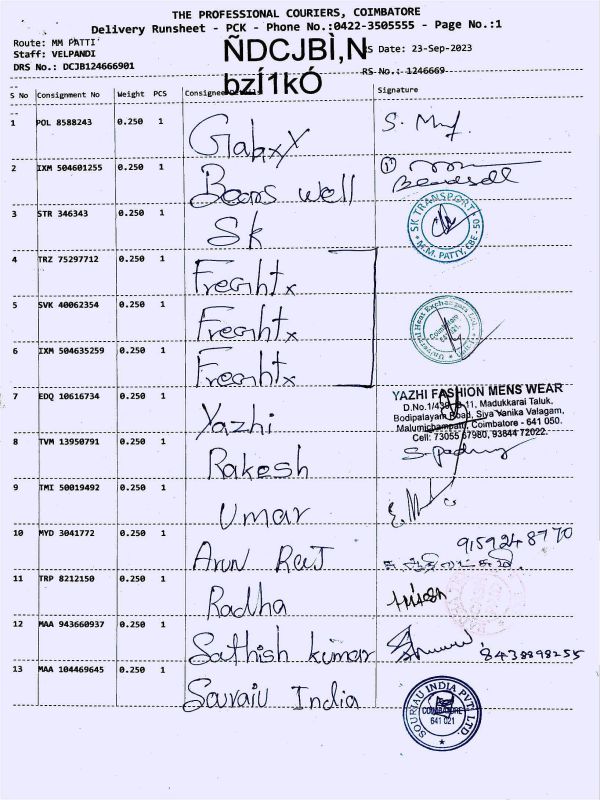 THE PROFESSIONAL COURIERS, COIMBATORE
Delivery Runsheet - PCK - Phone No.:0422-3505555 - Page No.:1
Route: MM PATTI
ÑDCJBÌ,N
RS Date: 23-Sep-2023
Staff: VELPANDI
DRS No.: DCJB124666901
bzÍ1kÓ
RS-No.: 1246669
S No Consignment No Weight PCS Consignee Details Signature
1 POL 8588243 0.250 1 Galaxy S.
2 IXM 504601255 0.250 1 Beans well
3 STR 346343 0.250 1 Sk
SK TRANSPORT
M.M. PATTY, CBE - 50
4 TRZ 75297712 0.250 1 Freghtx
5 SVK 40062354 0.250 1 Freghtx
Universal Heat Exchangers
Coimbatore
641 021
6 IXM 504635259 0.250 1 Freghtx
7 EDQ 10616734 0.250 1 Yazhi
YAZHI FASHION MENS WEAR
D.No.1/439, 11, Madukkarai Taluk,
Bodipalayam Road, Siva Vanika Valagam,
Malumichampatti, Coimbatore - 641 050.
Cell: 73055 67980, 93644 72022
8 TVM 13950791 0.250 1 Rakesh
9 TMI 50019492 0.250 1 Umar
10 MYD 3041772 0.250 1 Arun Raj 9159248770
11 TRP 8212150 0.250 1 Radha
12 MAA 943660937 0.250 1 Sathish kumar 8438898255
13 MAA 104469645 0.250 1 Souraiu India
SOURIAU INDIA PVT. LTD.
COIMBATORE
641 021